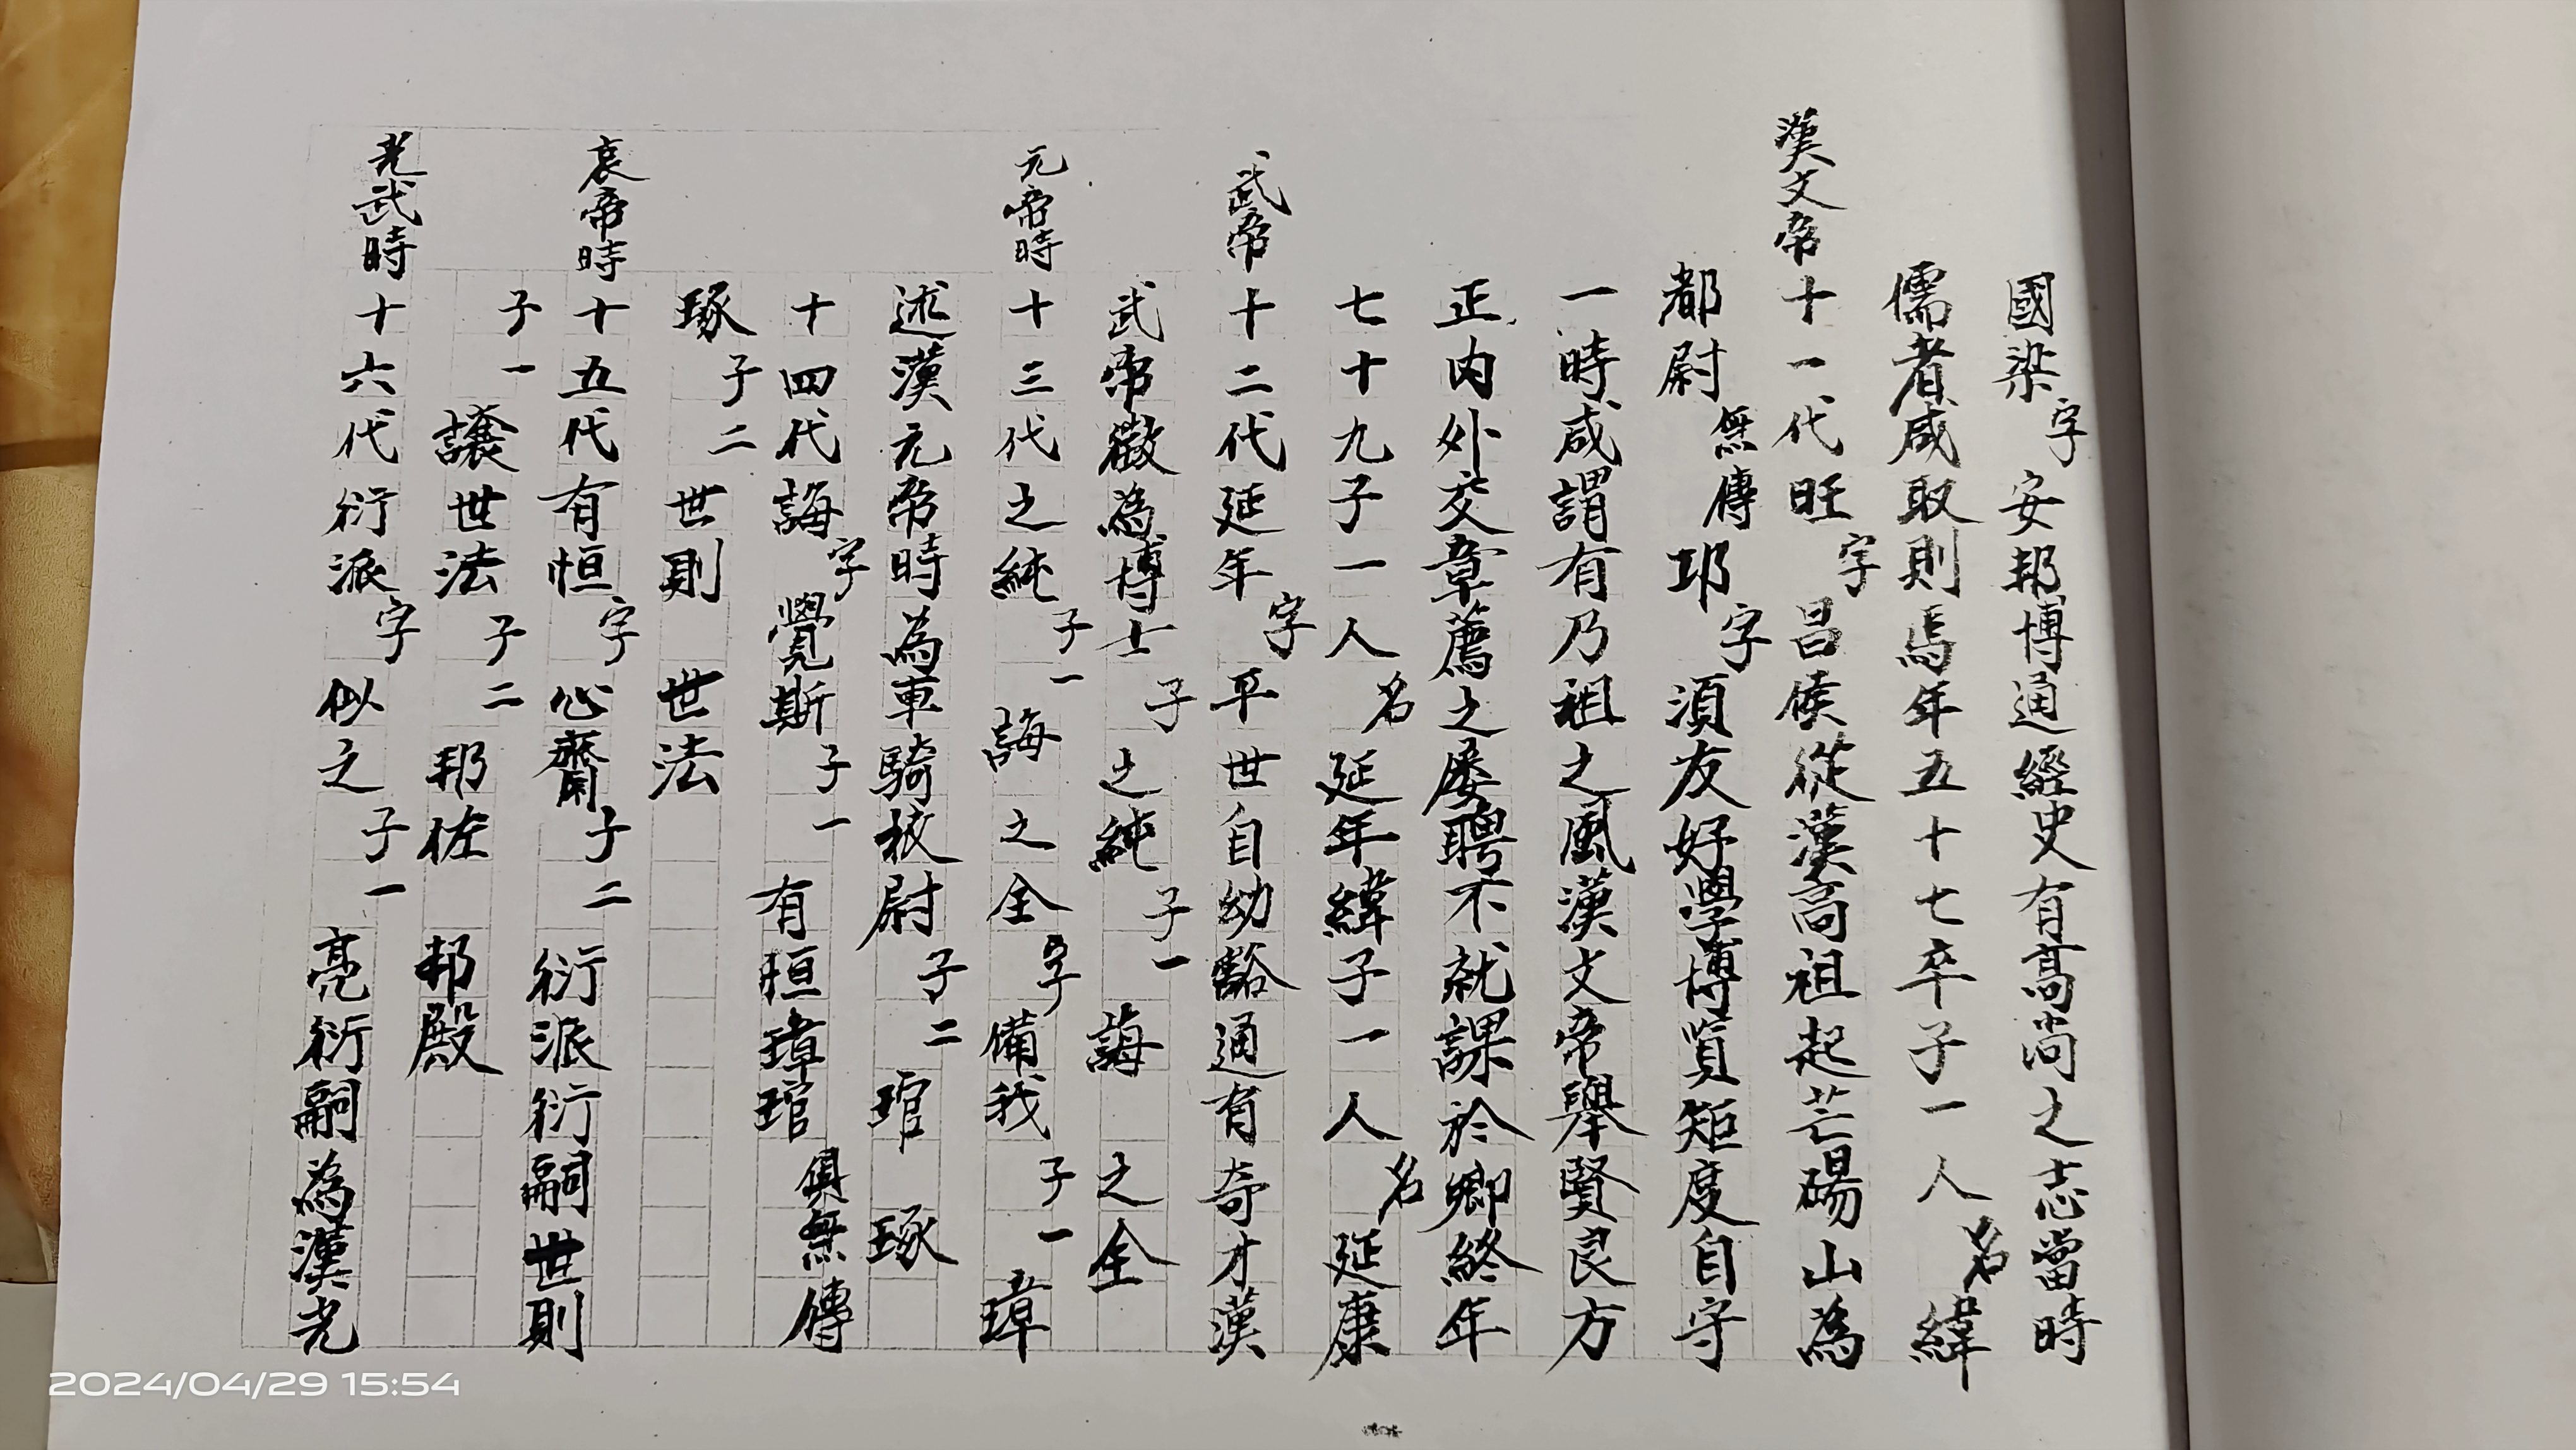 國梁字安邦博通經史有高尚之志當時
儒者咸取則焉年五十七卒子一人名緯
漢文帝十一代旺字昌侯從漢高祖起芒碭山為
都尉無傳邛字須友好學博覧矩度自守
一時咸謂有乃祖之風漢文帝舉賢良方
正內外交章薦之屡聘不就課於鄉終年
七十九子一人名延年緯子一人名延康
武帝十二代延年字平世自幼豁通有奇才漢
武帝徵為博士子之純子一誨之全
元帝時十三代之純子一誨之全字備我子一璋
述漢元帝時為車騎校尉子二琯琢
十四代誨字覺斯子一有恒璋琯俱無傳
琢子二世則世法
哀帝時十五代有恒字心齋子二衍派衍嗣世則
子一讓世法子二邦佐邦殿
光武時十六代衍派字似之子一亮衍嗣為漢光
2024/04/29 15:54